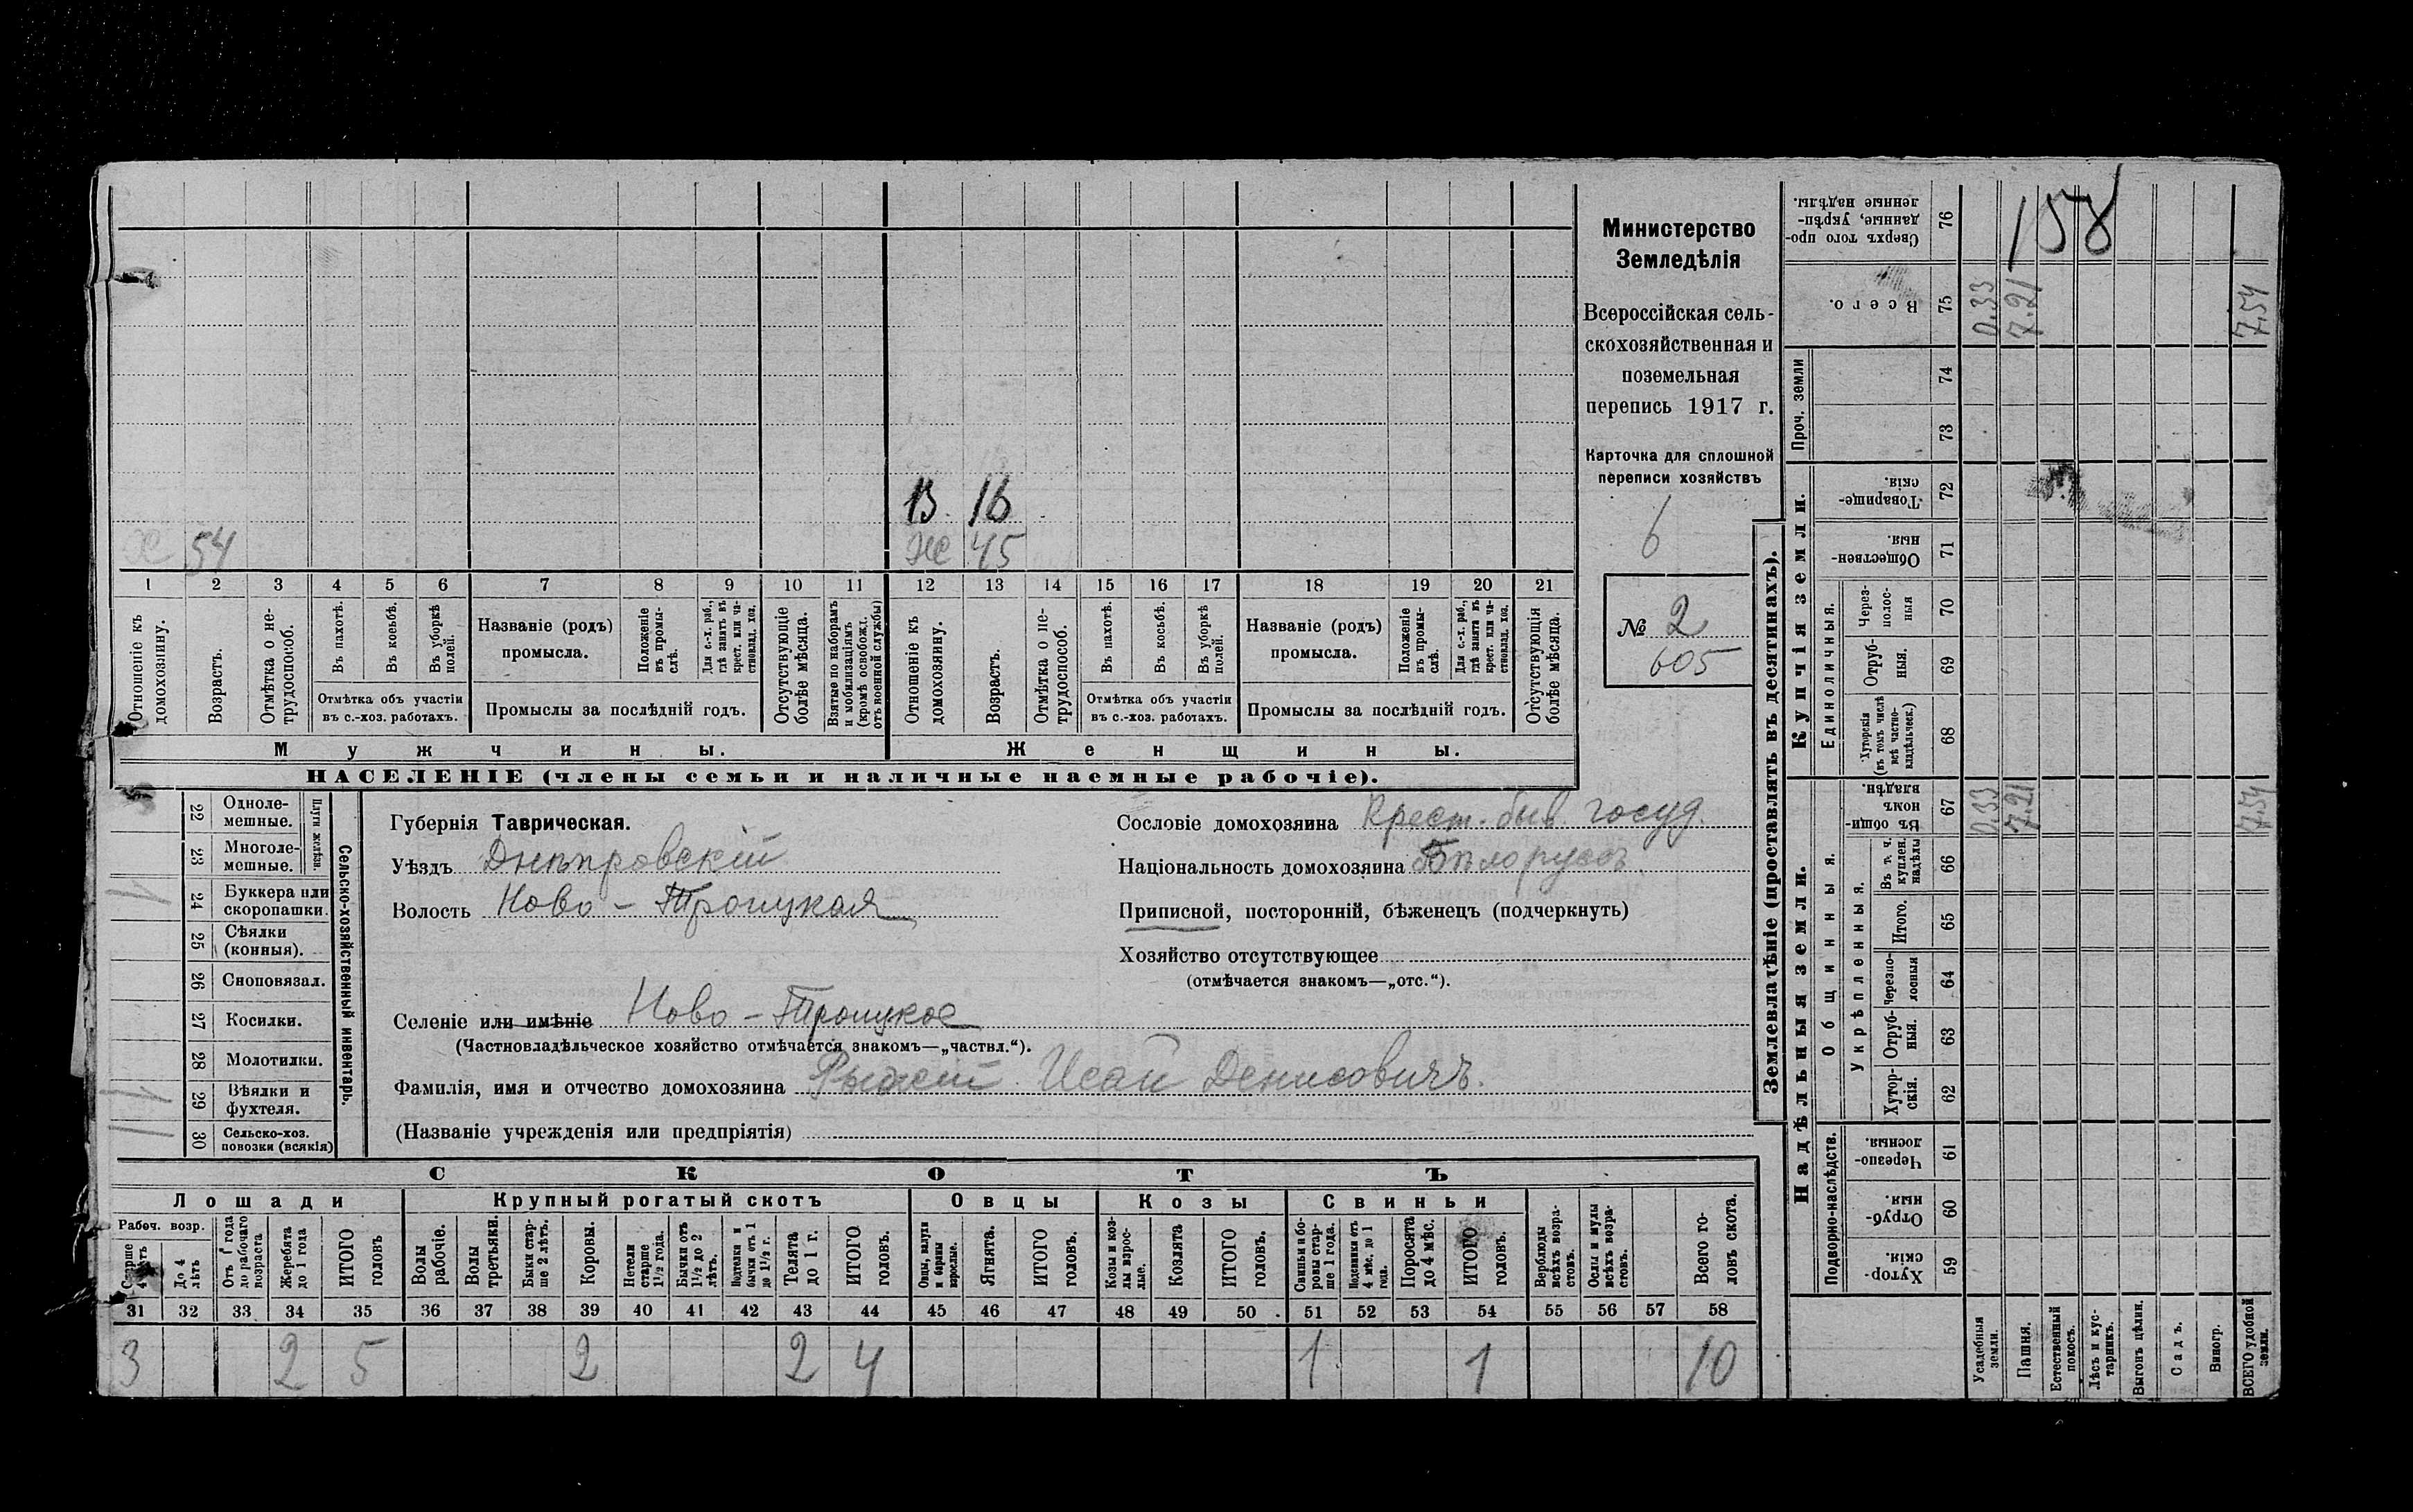 158
В 16
Х 54
Ж 45
1 2 3 4 5 6 7 8 9 10 11 12 13 14 15 16 17 18 19 20 21
Отношеніе къ домохозяину.
Возрастъ.
Отмѣтка о нетрудоспособ.
Въ пахотѣ.
Въ косьбѣ.
Въ уборкѣ полей.
Отмѣтка объ участіи
въ с.-хоз. работахъ.
Названіе (родъ)
промысла.
Положеніе въ промыслѣ.
Для с.-х. раб., гдѣ занятъ въ крест. или частновлад. хоз.
Промыслы за послѣдній годъ.
Отсутствующіе болѣе мѣсяца.
Взятые по наборамъ и мобилизаціямъ (кромѣ освобожд. отъ военной службы)
Отношеніе къ домохозяину.
Возрастъ.
Отмѣтка о нетрудоспособ.
Въ пахотѣ.
Въ косьбѣ.
Въ уборкѣ полей.
Отмѣтка объ участіи
въ с.-хоз. работахъ.
Названіе (родъ)
промысла.
Положеніе въ промыслѣ.
Для с.-х. раб., гдѣ занята въ крест. или частновлад. хоз.
Промыслы за послѣдній годъ.
Отсутствующія болѣе мѣсяца.
Мужчины.
Женщины.
НАСЕЛЕНІЕ (члены семьи и наличные наемные рабочіе).
Министерство
Земледѣлія
Всероссійская сель-
скохозяйственная и
поземельная
перепись 1917 г.
Карточка для сплошной
переписи хозяйствъ
6
№ 2
605
22 Одноле-
мешные.
23 Многоле-
мешные.
Плуги желѣзн.
24 Буккера или
скоропашки.
1
25 Сѣялки
(конныя).
26 Сноповязал.
27 Косилки.
28 Молотилки.
29 Вѣялки и
фухтеля.
1
30 Сельско-хоз.
повозки (всякія)
1
Сельско-хозяйственный инвентарь.
Губернія Таврическая.
Уѣздъ Днѣпровскій
Волость Ново-Троицкая
Селеніе или имѣніе Ново-Троицкое
(Частновладѣльческое хозяйство отмѣчается знакомъ—„частвл.“).
Фамилія, имя и отчество домохозяина Рыжий Исай Денисовичъ.
(Названіе учрежденія или предпріятія)
Сословіе домохозяина Крест. быв. госуд.
Національность домохозяина Бѣлоруссъ
Приписной, посторонній, бѣженецъ (подчеркнуть)
Хозяйство отсутствующее
(отмѣчается знакомъ—„отс.“).
СКОТЪ
Лошади
Крупный рогатый скотъ
Овцы
Козы
Свиньи
Рабоч. возр.
Старше 4 лѣтъ
До 4 лѣтъ
Отъ 1 года до рабочаго возраста
Жеребята до 1 года
ИТОГО головъ
Волы рабочіе.
Волы третьяки.
Быки старше 2 лѣтъ.
Коровы.
Нетели старше 1½ года.
Бычки отъ 1½ до 2 лѣтъ.
Подтелки и бычки отъ 1 до 1½ г.
Телята до 1 г.
ИТОГО головъ.
Овцы, валухи и бараны взрослые.
Ягнята.
ИТОГО головъ.
Козы и козлы взрослые.
Козлята
ИТОГО головъ.
Свиньи и боровы старше 1 года.
Подсвинки отъ 4 мѣс. до 1 года.
Поросята до 4 мѣс.
ИТОГО головъ.
Верблюды всѣхъ возрастовъ.
Ослы и мулы всѣхъ возрастовъ.
Всего головъ скота.
31 32 33 34 35 36 37 38 39 40 41 42 43 44 45 46 47 48 49 50 51 52 53 54 55 56 57 58
3 2 5 2 2 4 1 1 10
Землевладѣніе (проставлять въ десятинахъ).
Купчія земли.
Надѣльныя земли.
Сверхъ того проданные, укрѣпленные надѣлы. 76
Всего. 75 0.33 7.21 7.54
Проч. земли
74
73
Товарищескія. 72
Общественныя. 71
Единоличныя.
Черезполосныя 70
Отрубныя. 69
Хуторскія (въ томъ числѣ всѣ частновладѣльческ.) 68
Въ общинномъ владѣн. 67 0.33 7.21 7.54
Общинныя.
Укрѣпленныя.
Въ т. ч. куплен. надѣлы 66
Итого. 65
Черезполосныя 64
Отрубныя. 63
Хуторскія. 62
Подворно-наслѣдств.
Черезполосныя. 61
Отрубныя. 60
Хуторскія. 59
Усадебныя земли.
Пашня.
Естественный покосъ.
Лѣсъ и кустарникъ.
Выгонъ цѣлин.
Садъ.
Виногр.
ВСЕГО удобной земли.